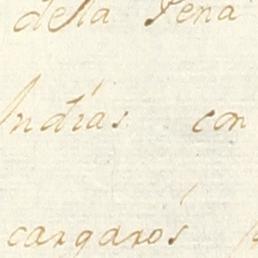 della Pena
Indias con
cargaros